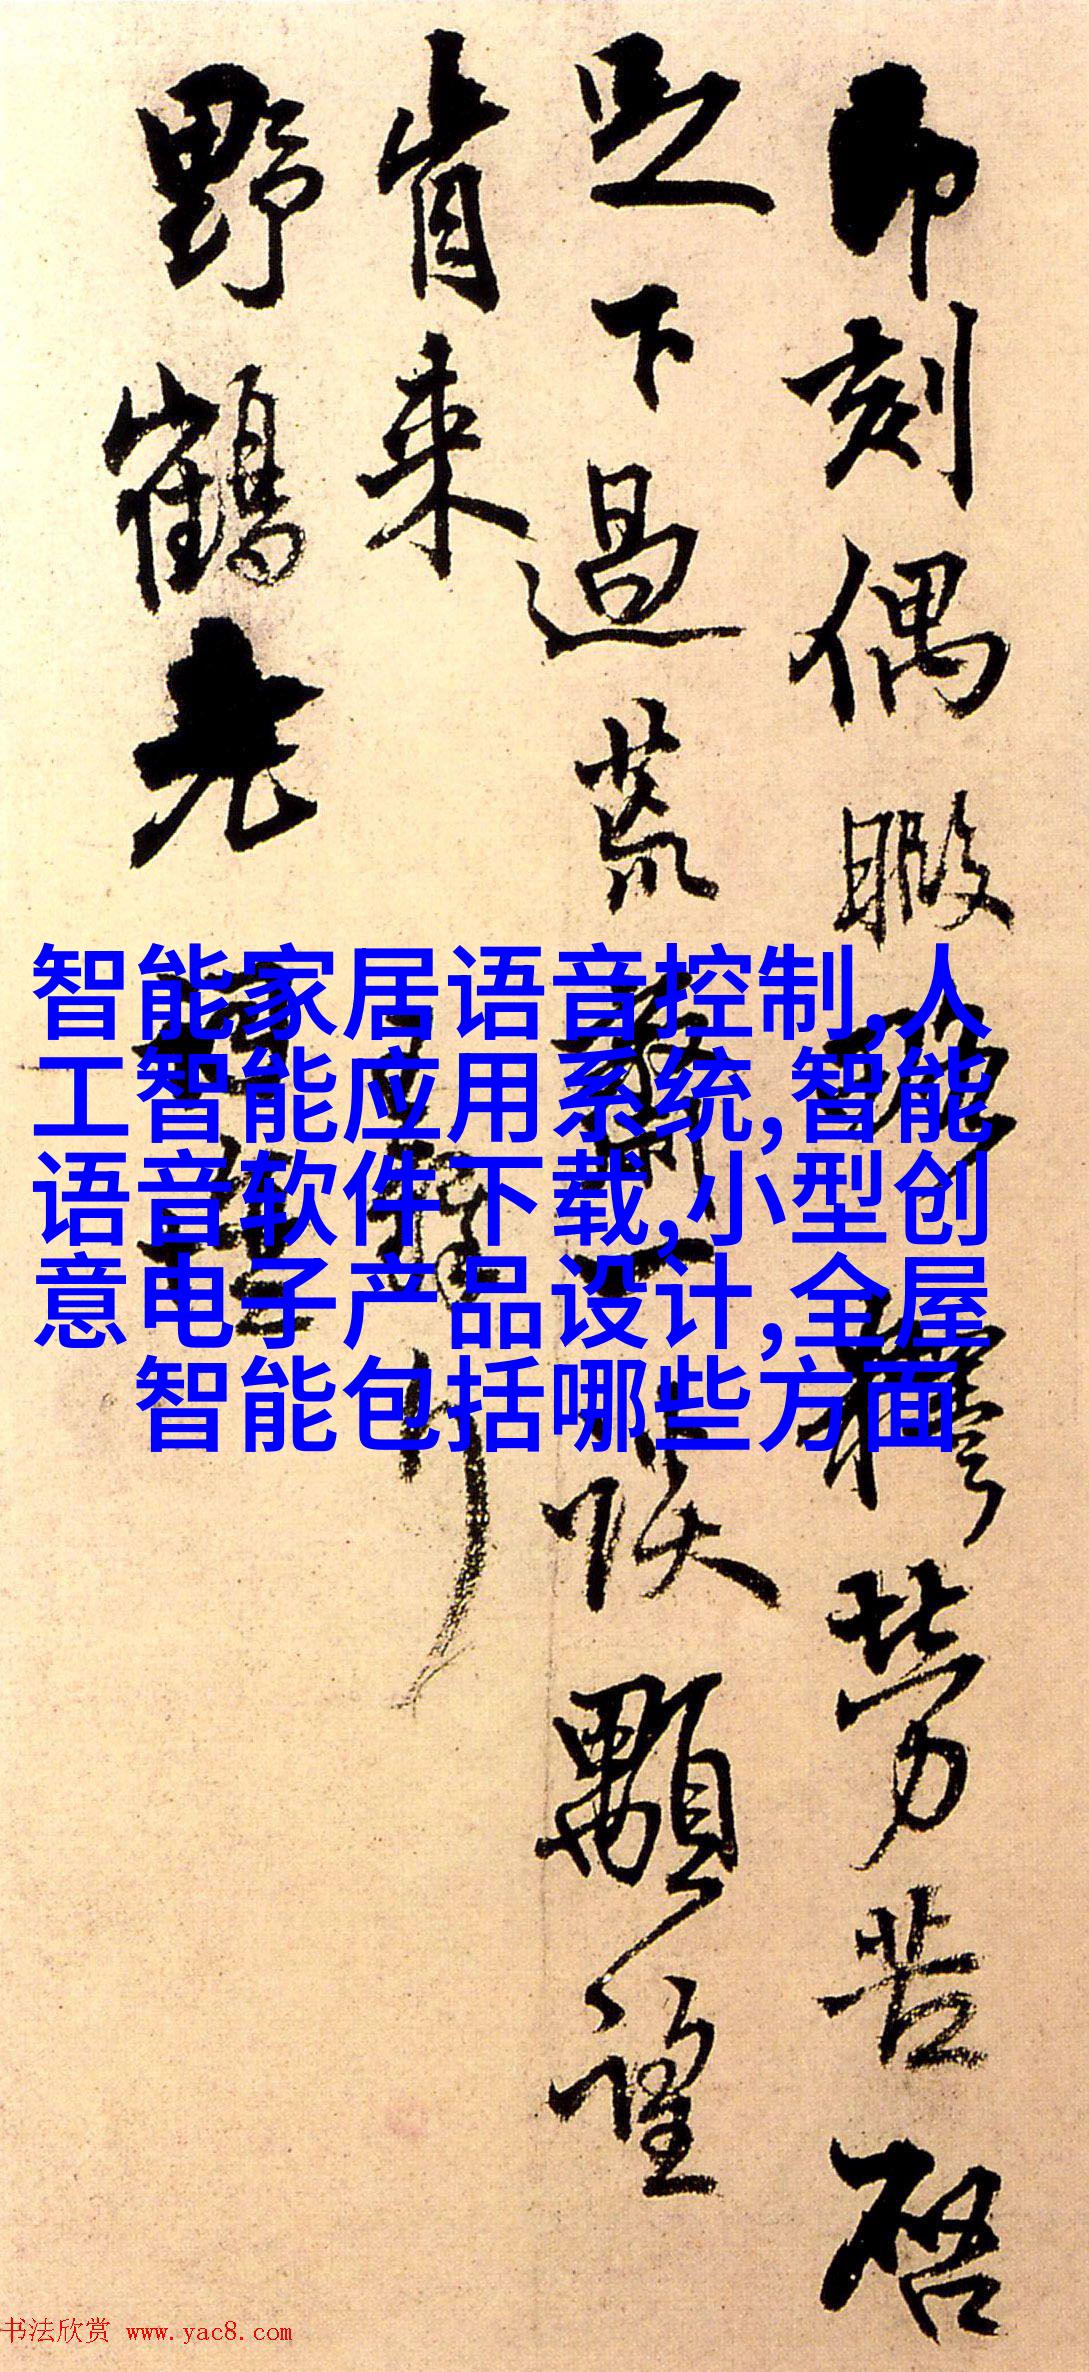 即刻偶暇勞苦啓
足下過荒齋一談顒望
肯来
野鶴老
智能家居语音控制,人
工智能应用系统,智能
语音软件下载,小型创
意电子产品设计,全屋
智能包括哪些方面
书法欣赏 www.yac8.com